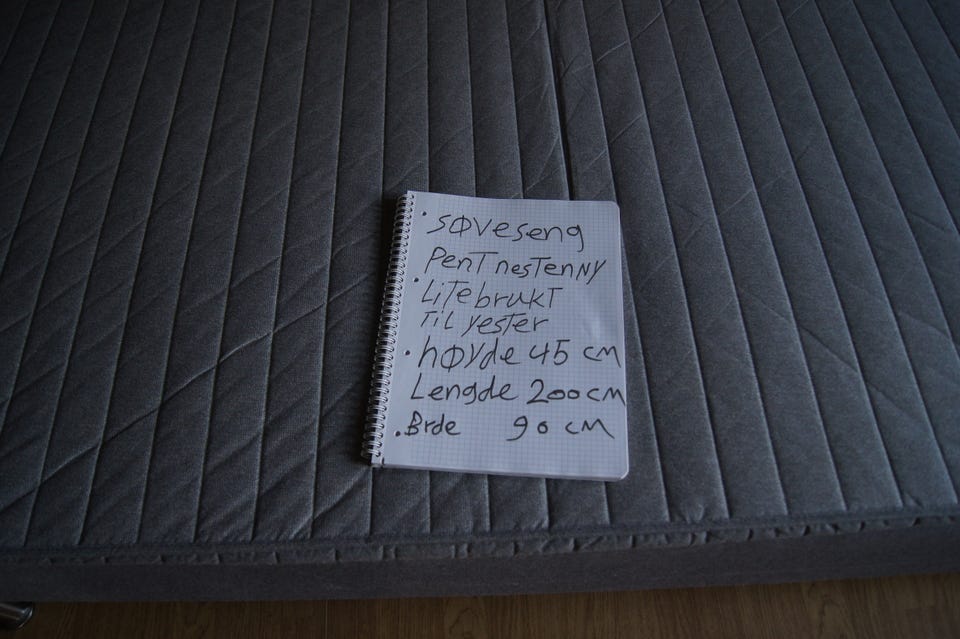 søveseng
PenT nesTenny
LiTebrukT
TiL yester
høyde 45 cm
Lengde 200 cm
Brde 90 cm